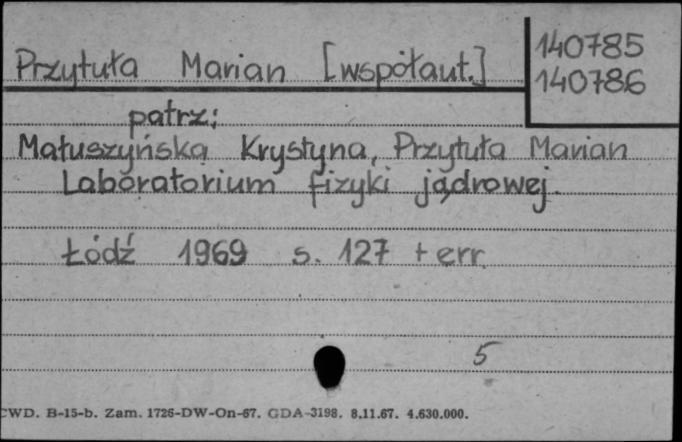 Przytuła Marian [współaut.]
140785
140786
patrz:
Matuszyńska Krystyna, Przytuła Marian
Laboratorium fizyki jądrowej.
Łódź 1969 s. 127 + err
5
CWD. B-15-b. Zam. 1726-DW-On-67. GDA-3198. 8.11.67. 4.630.000.